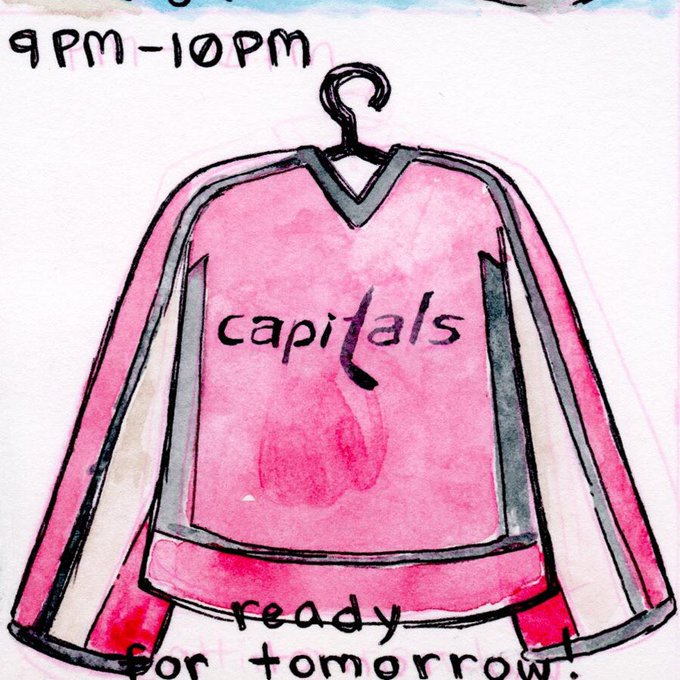 9PM-10PM
capitals
ready
for tomorrow!